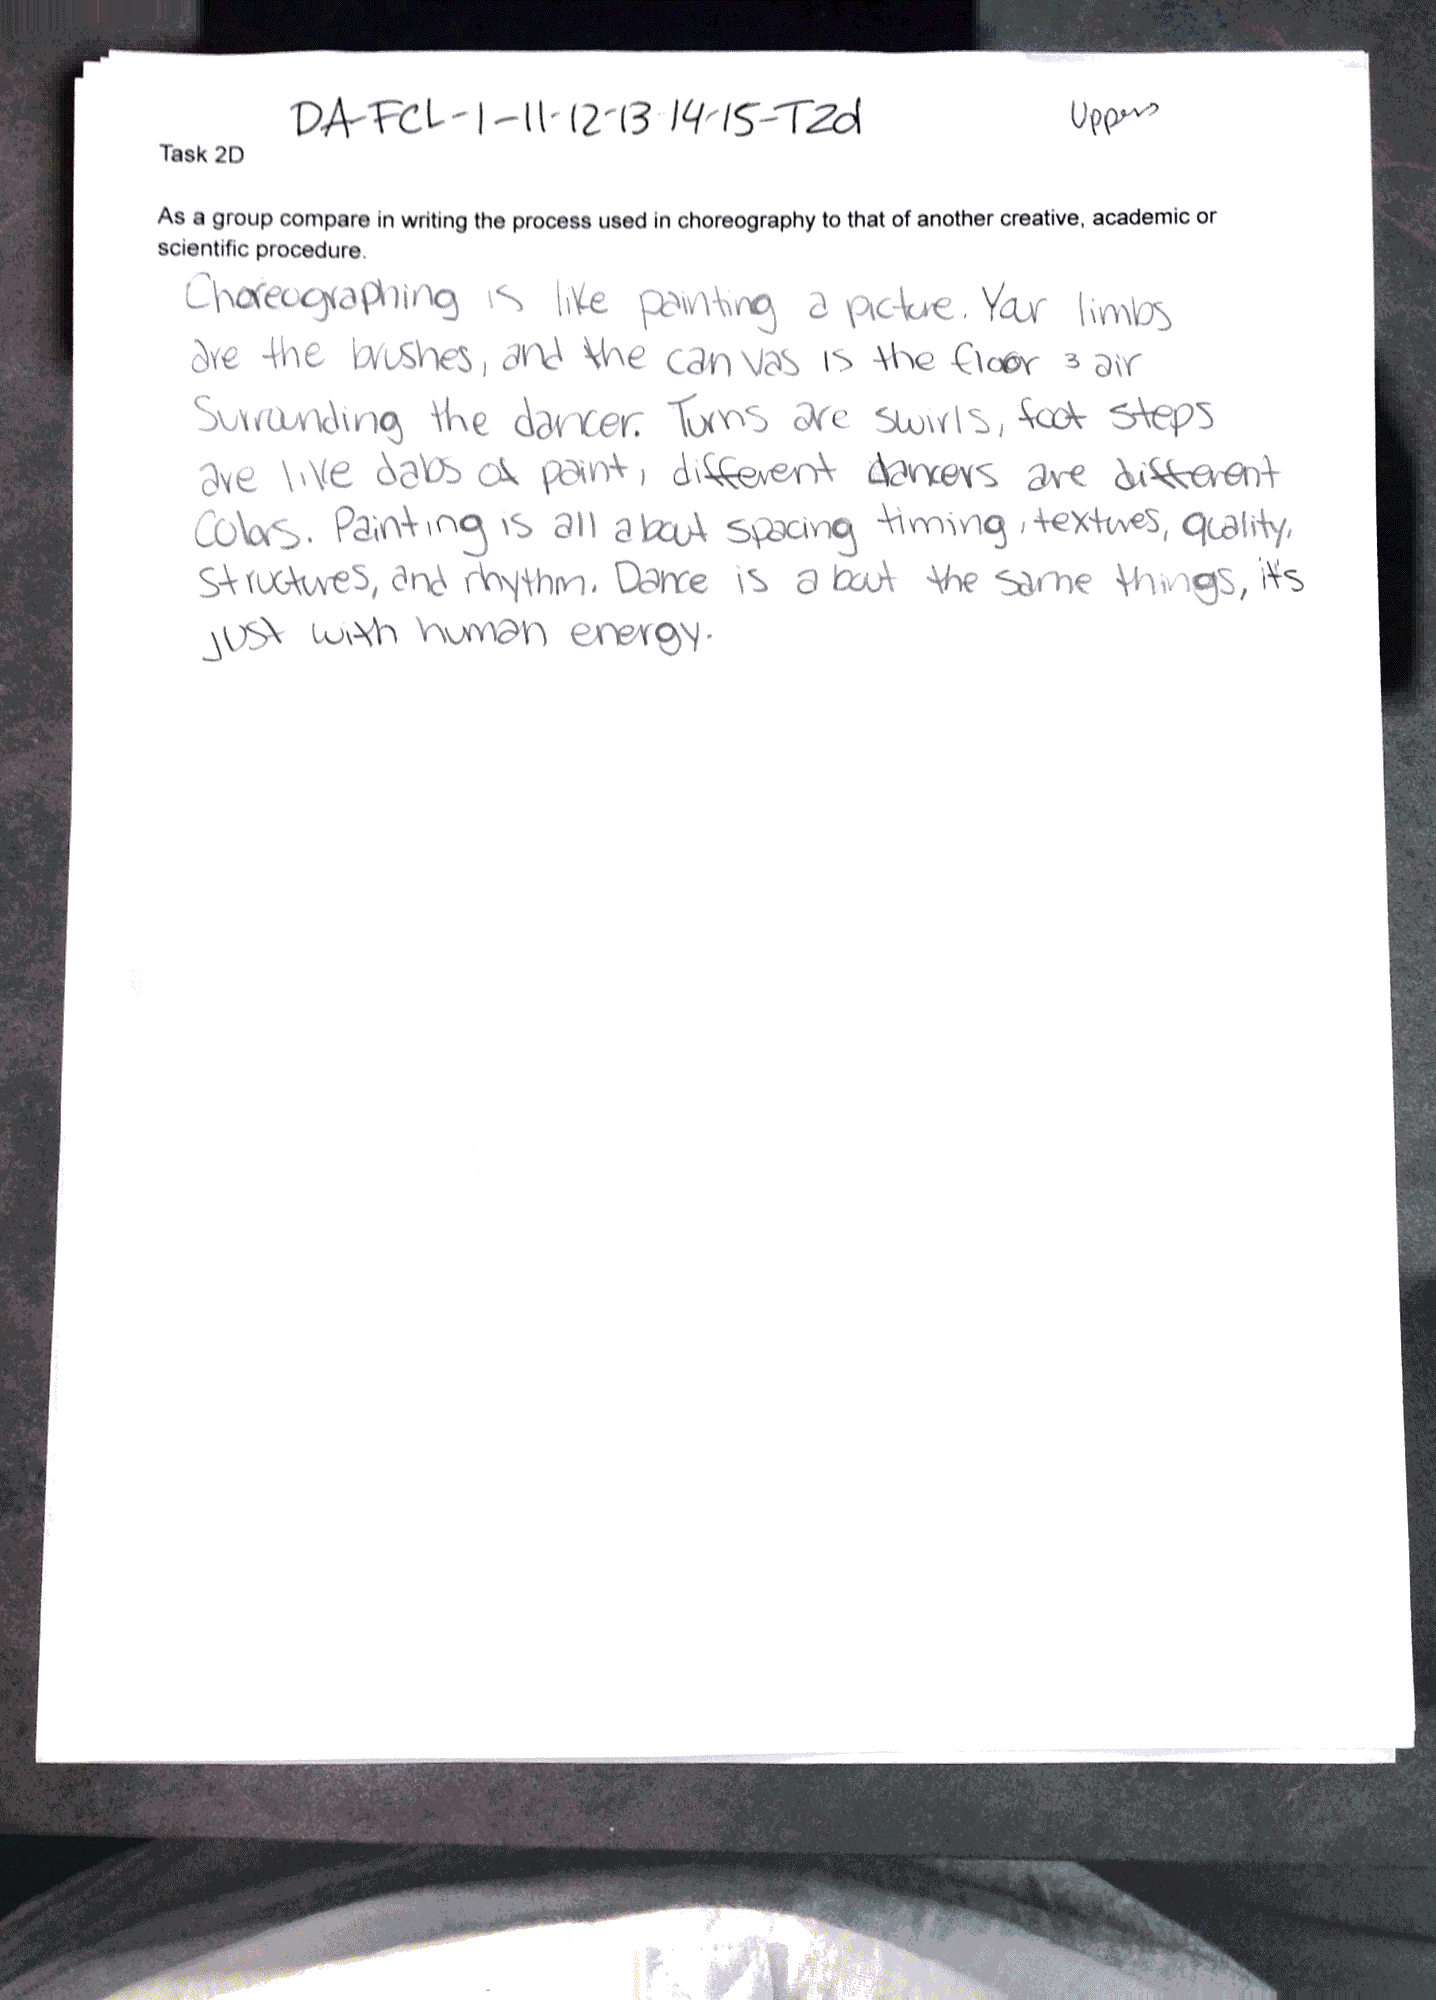 DA-FCL-1-11-12-13-14-15-T2d
Uppers
Task 2D
As a group compare in writing the process used in choreography to that of another creative, academic or
scientific procedure.
Choreographing is like painting a picture. Your limbs
are the brushes, and the canvas is the floor & air
Surrounding the dancer. Turns are swirls, foot steps
are like dabs of paint, different dancers are different
Colors. Painting is all about spacing timing, textures, quality,
Structures, and rhythm. Dance is about the same things, it's
just with human energy.